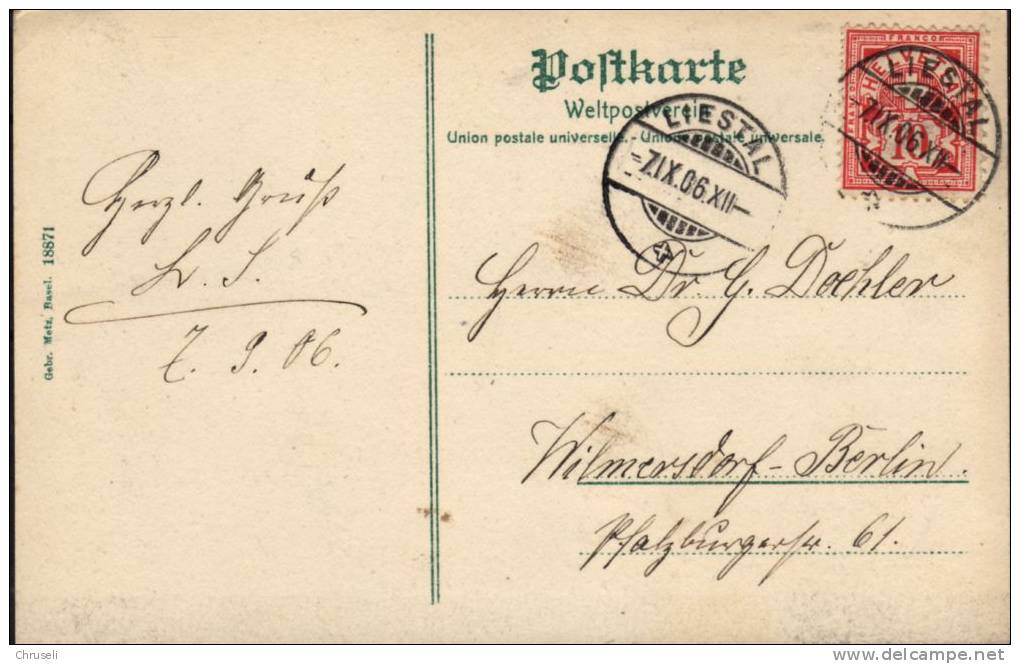 Postkarte
Weltpostverein
Union postale universelle. - Unione postale universale.
FRANCO
HELVETIA
FRANCO
10
LIESTAL
7.IX.06.XII-
LIESTAL
-7.IX.06.XII-
Herzl. Gruß
L. S.
7. 9. 06.
Gebr. Metz, Basel. 18871
Herrn Dr. G. Doehler
Wilmersdorf-Berlin.
Pfalzburgerstr. 61.
Chruseli
delcampe.net